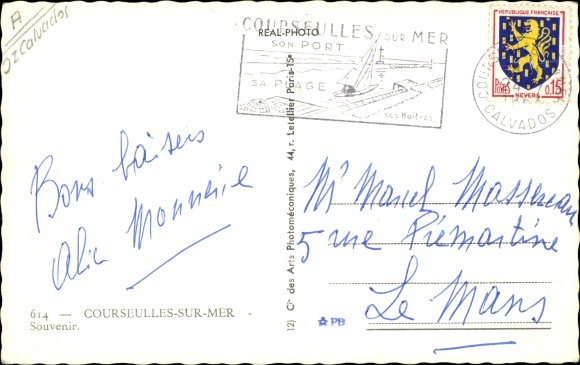 A
02 Calvados
COURSEULLES SUR MER
REAL-PHOTO
SON PORT
SA PLAGE
ses Huîtres
REPUBLIQUE FRANÇAISE
POSTES 0,15
NEVERS
CALVADOS
Bons baisers
Alice
12) Cie des Arts Photomécaniques, 44, r. Letellier Paris-15e
Mr Marcel
5 rue Piémartine
Le Mans
PB
614 — COURSEULLES-SUR-MER -
Souvenir.